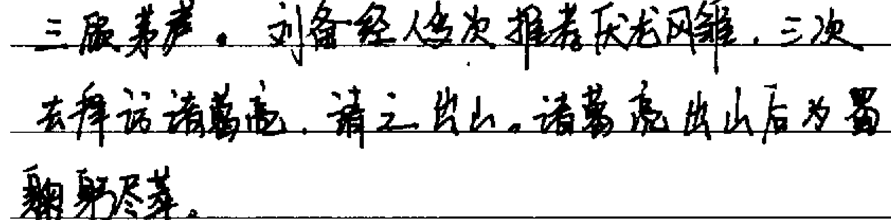 三顾茅庐。刘备经人多次推荐伏龙凤雏,三次
去拜访诸葛亮,请之出山。诸葛亮出山后为蜀
鞠躬尽萃。